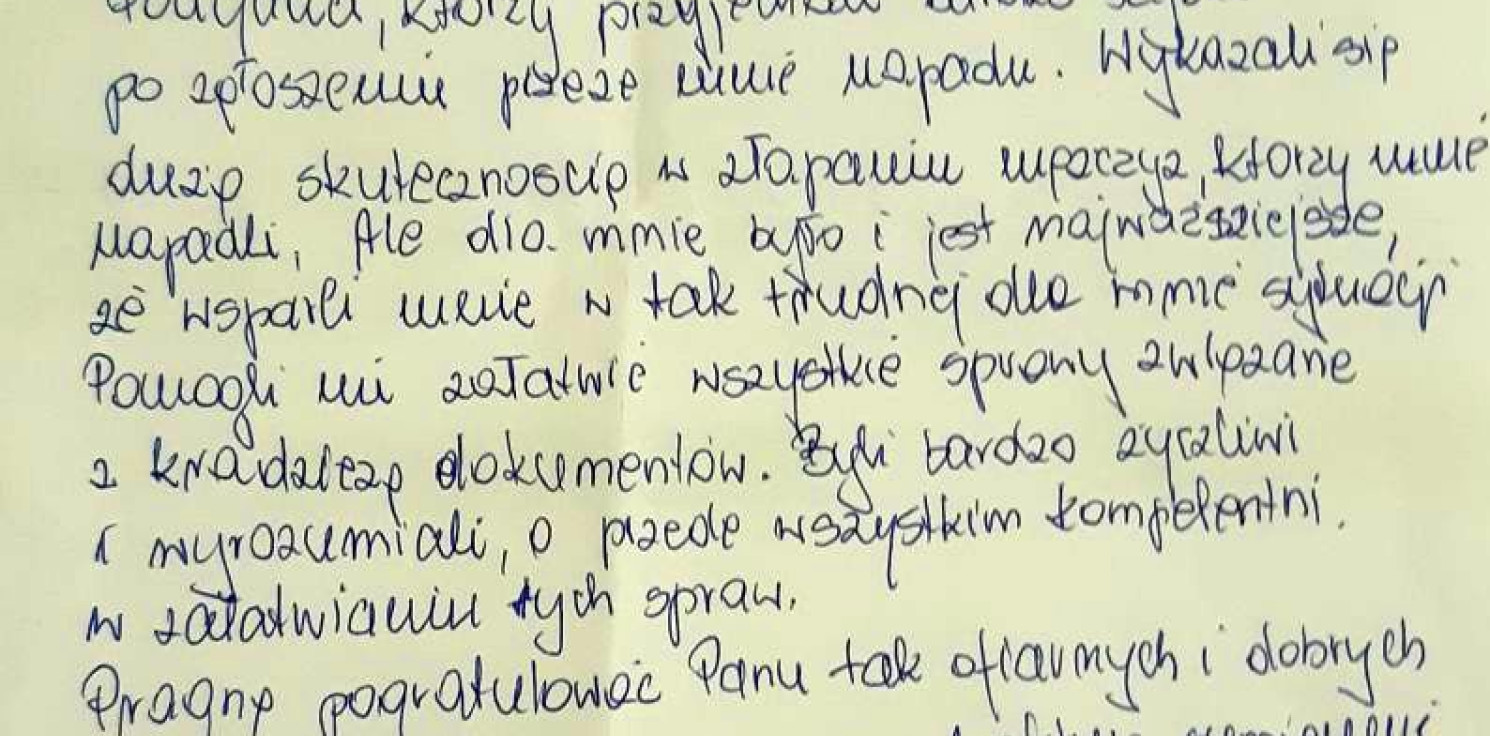 , którzy
po zgłoszeniu przeze mnie napadu. Wykazali się
dużą skutecznością w złapaniu mężczyz, którzy mnie
napadli, Ale dla mnie było i jest najważniejsze,
że wsparli mnie w tak trudnej dla mnie sytuacji
Pomogli mi załatwić wszystkie sprawy związane
z kradzieżą dokumentów. Byli bardzo życzliwi
i wyrozumiali, a przede wszystkim kompetentni.
w załatwianiu tych spraw.
Pragnę pogratulować Panu tak ofiarnych i dobrych